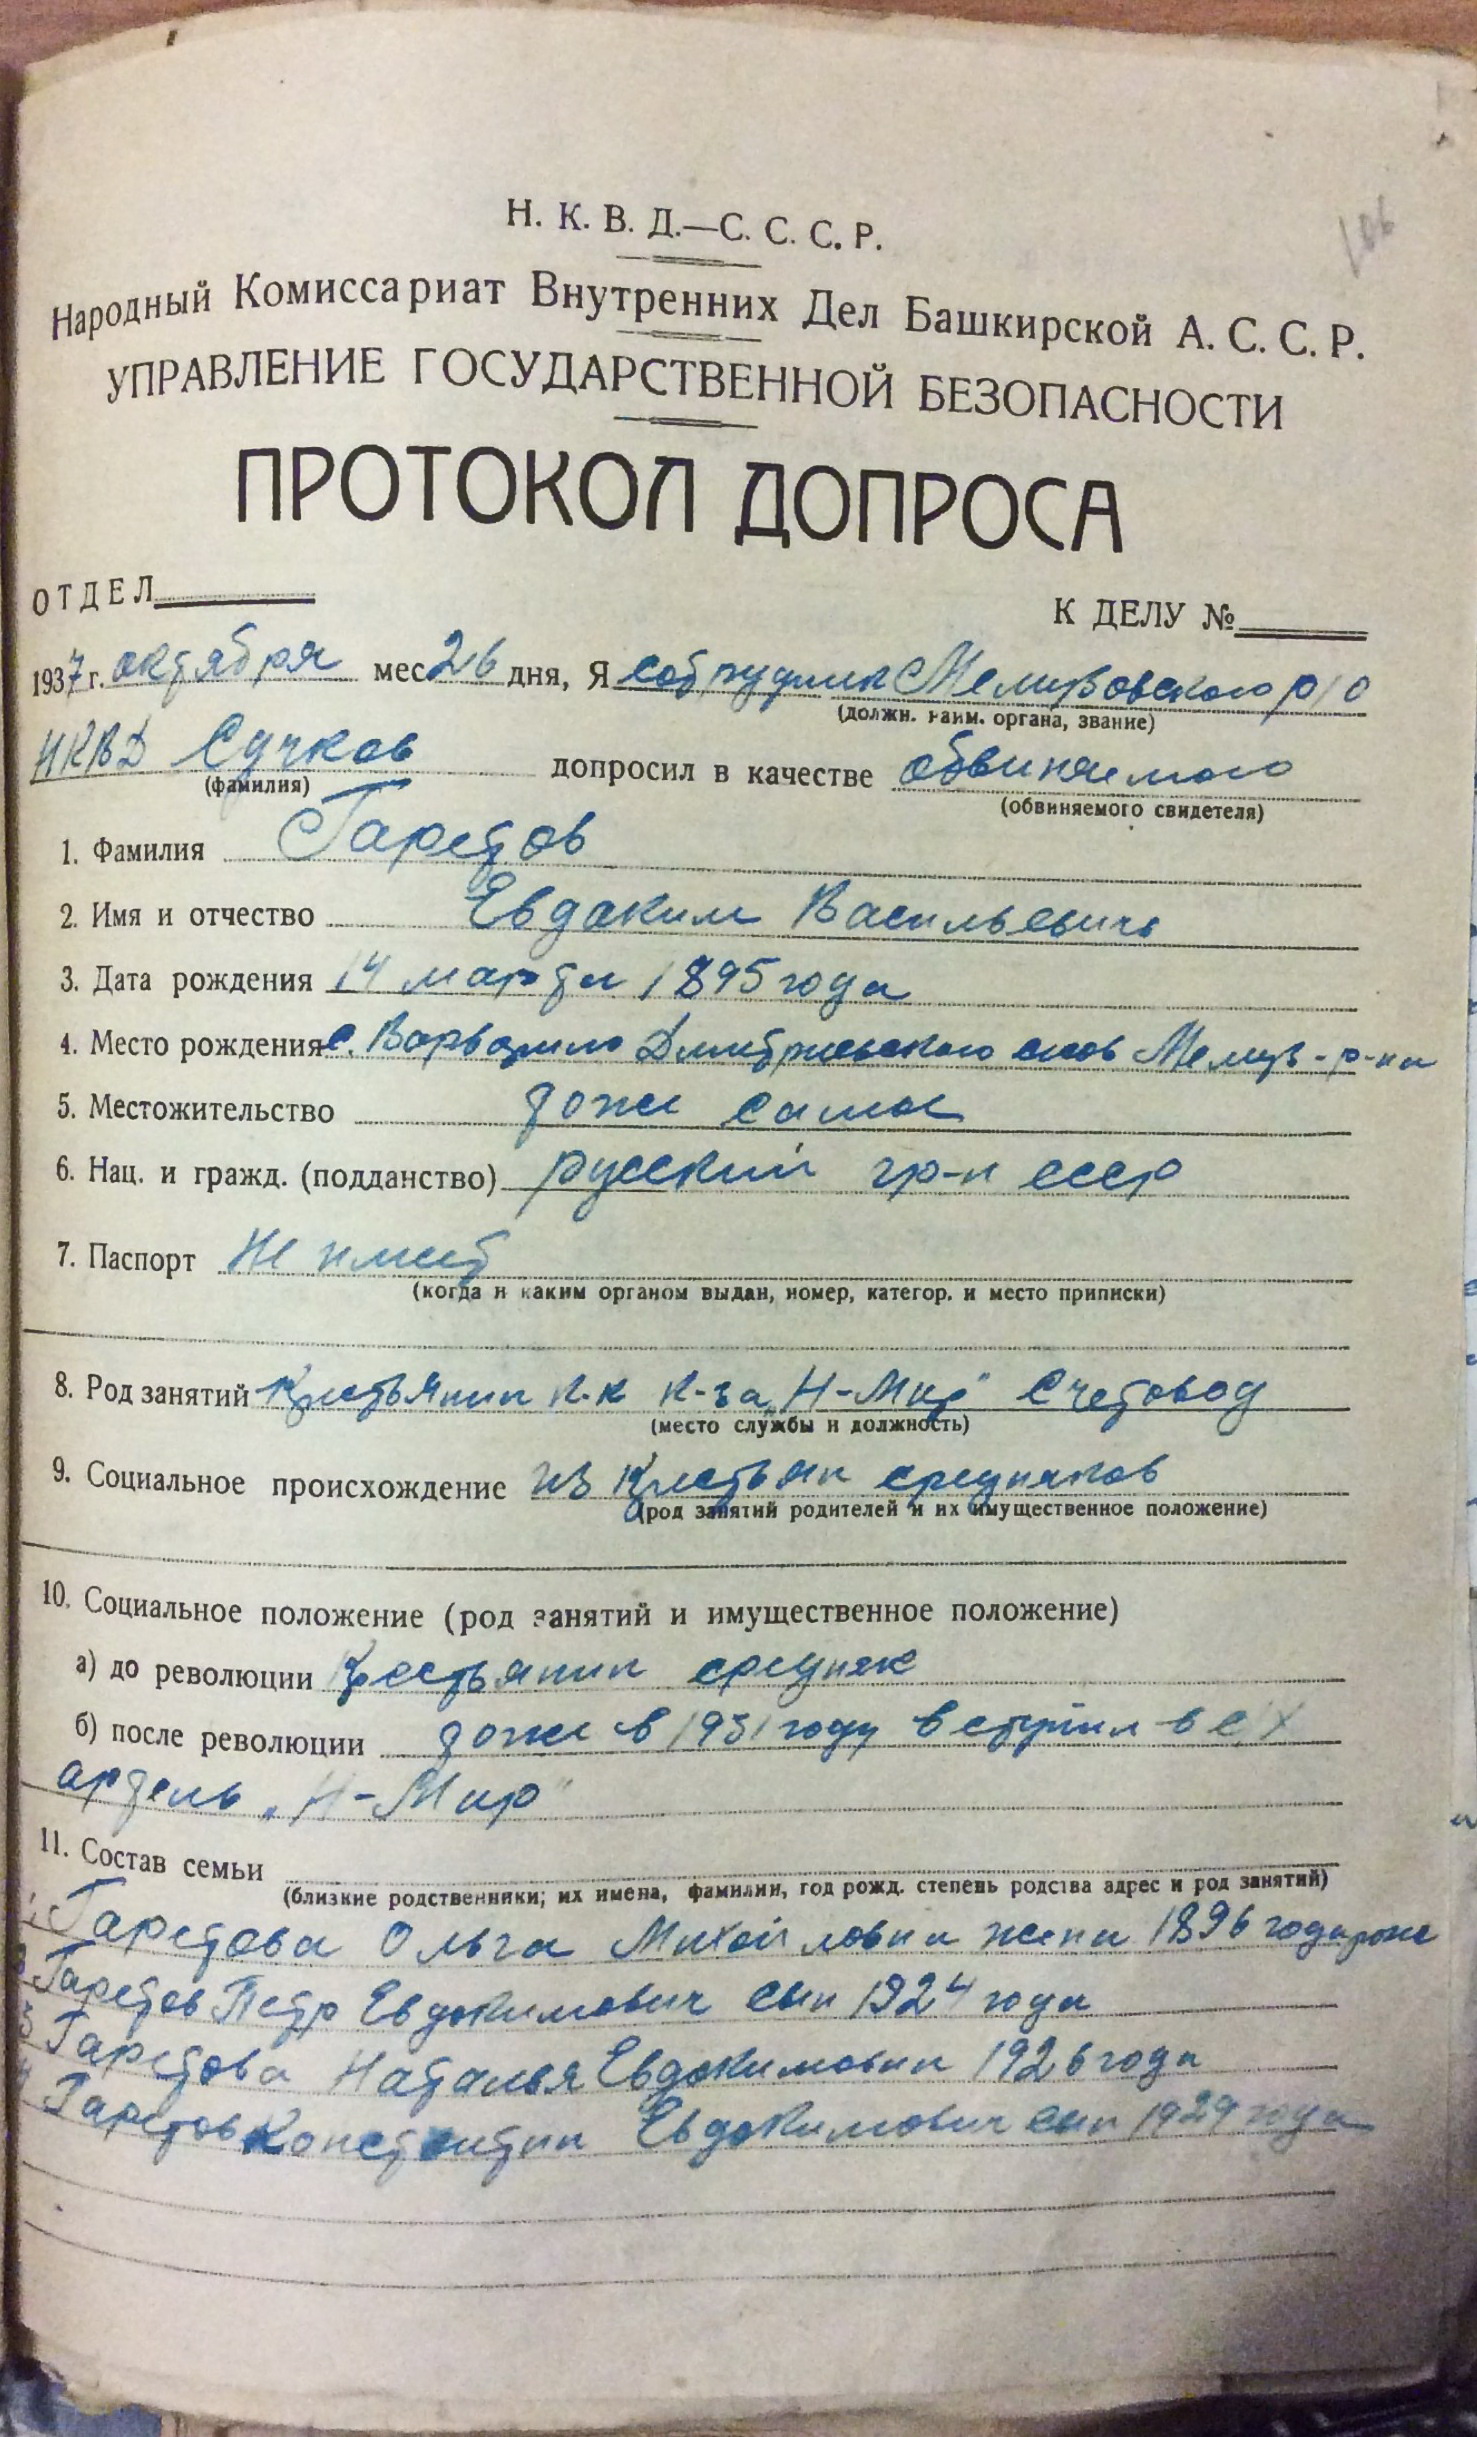 106
Н. К. В. Д.—С. С. С. Р.
Народный Комиссариат Внутренних Дел Башкирской А. С. С. Р.
УПРАВЛЕНИЕ ГОСУДАРСТВЕННОЙ БЕЗОПАСНОСТИ
ПРОТОКОЛ ДОПРОСА
ОТДЕЛ
К ДЕЛУ №
1937 г. октября мес 26 дня, Я сотрудник Мелеузовского р/о
(должн. наим. органа, звание)
НКВД Сучков допросил в качестве обвиняемого
(фамилия)
(обвиняемого свидетеля)
1. Фамилия Гаретов
2. Имя и отчество Евдаким Васильевич
3. Дата рождения 14 марта 1895 года
4. Место рождения с. Варварино Дмитриевского с/сов Мелеуз-р-на
5. Местожительство тоже самое
6. Нац. и гражд. (подданство) русский гр-н СССР
7. Паспорт Не имеет
(когда и каким органом выдан, номер, категор. и место приписки)
8. Род занятий Крестьянин к-к к-за „Н-Мир" Счетовод
(место службы и должность)
9. Социальное происхождение из Крестьян середняков
(род занятий родителей и их имущественное положение)
10. Социальное положение (род занятий и имущественное положение)
а) до революции Крестьянин середняк
б) после революции тоже в 1931 году вступил в с/х
артель „Н-Мир"
11. Состав семьи
(близкие родственники; их имена, фамилии, год рожд. степень родства адрес и род занятий)
1. Гаретова Ольга Михайловна жена 1896 года рож
2 Гаретов Петр Евдокимович сын 1924 года
3 Гаретова Наталья Евдокимовна 1926 года
4 Гаретов Константин Евдокимович сын 1929 года